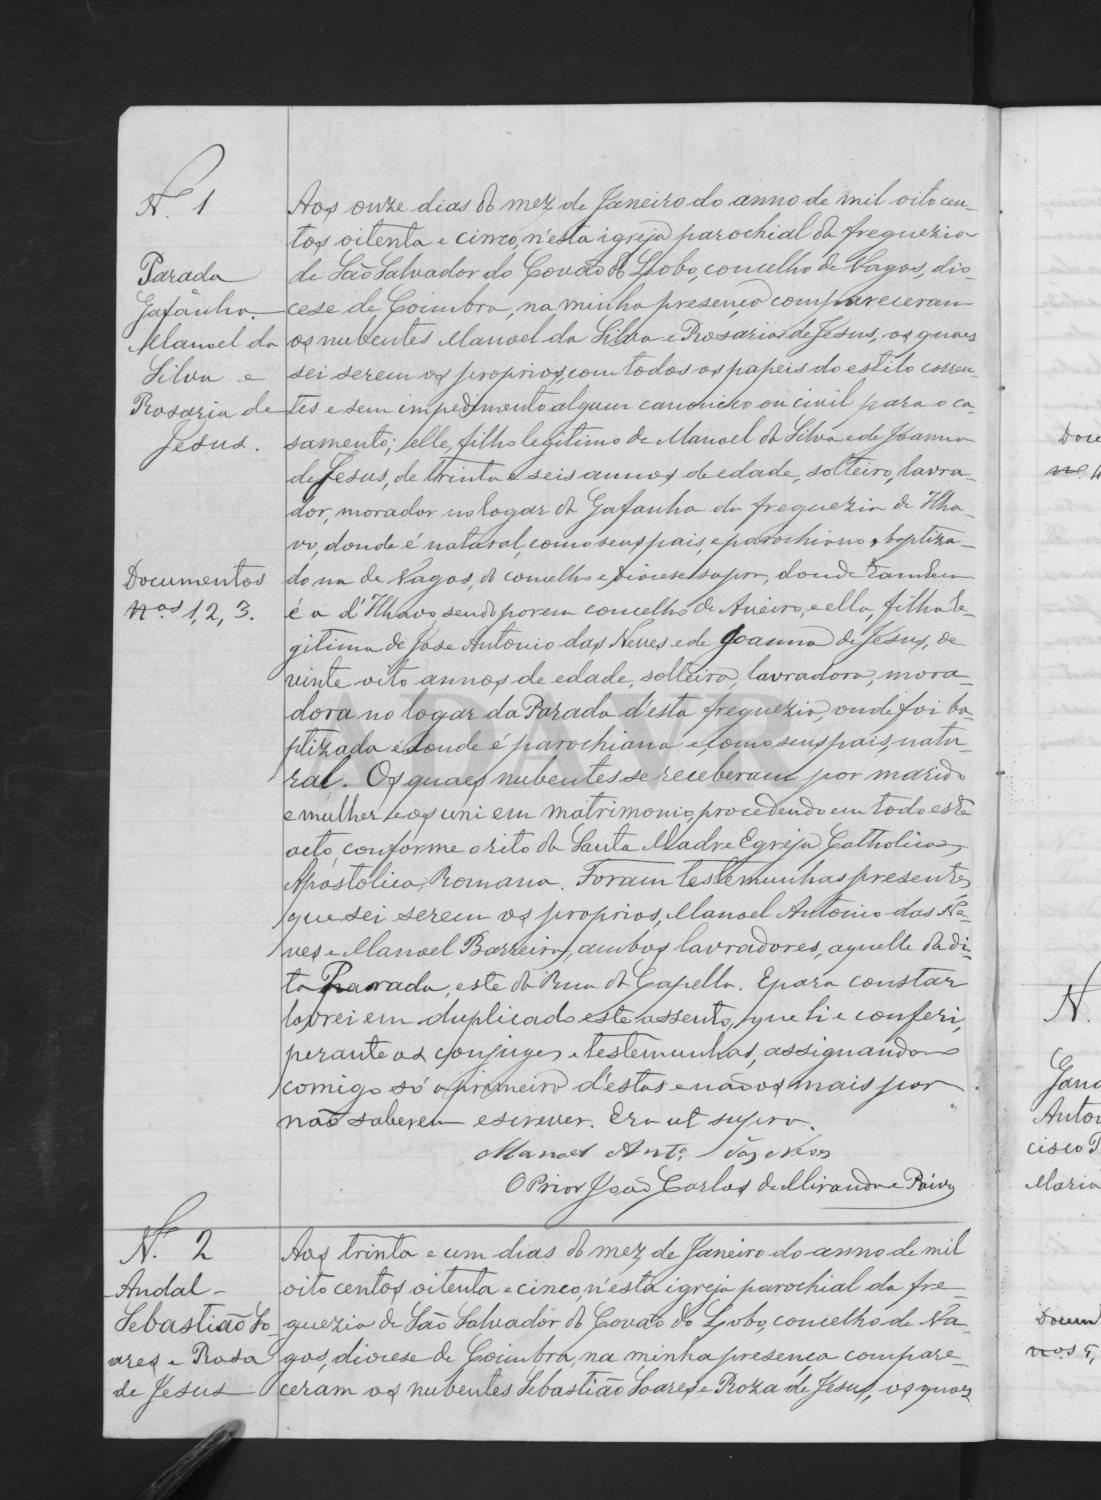 N.º 1
Parada
Gafanha.
Manoel da
Silva e
Rosaria de
Jesus.
Documentos
nos 1, 2, 3.
Aos onze dias do mez de Janeiro do anno de mil oitocen-
tos oitenta e cinco, n'esta igreja parochial da freguezia
de São Salvador do Covão do Lobo, concelho de Vagos, dio-
cese de Coimbra, na minha presença compareceram
os nubentes Manoel da Silva e Rosaria de Jesus, os quaes
sei serem os proprios, com todos os papeis do estilo corren-
tes e sem impedimento algum canonico ou civil para o ca-
samento; elle, filho legitimo de Manoel da Silva e de Joanna
de Jesus, de trinta e seis annos de edade, solteiro, lavra-
dor, morador no logar da Gafanha da freguezia de Ilha-
vo, donde é natural, como seus pais, e parochiano, baptiza-
do na de Vagos, do concelho e diocese supra, donde tambem
é a d'Ilhavo, sendo porem concelho de Aveiro, e ella, filha le-
gitima de José Antonio das Neves e de Joanna de Jesus, de
vinte oito annos de edade, solteira, lavradora, mora-
dora no logar da Parada d'esta freguezia, onde foi ba-
ptizada e donde é parochiana e, como seus pais, natu-
ral. Os quaes nubentes se receberam por marido
e mulher e os uni em matrimonio, procedendo em todo este
acto, conforme o rito da Santa Madre Egreja Catholica,
Apostolica, Romana. Foram testemunhas presentes,
que sei serem os proprios, Manoel Antonio das Ne-
ves e Manoel Barreira, ambos lavradores, aquelle da di-
ta Parada, este da Rua da Capella. E para constar
lavrei em duplicado este assento, que li e conferi,
perante os conjuges e testemunhas, assignando
comigo só o primeiro d'estas e não os mais por
não saberem escrever. Era ut supra.
Manoel Antº das Neves
O Prior João Carlos de Miranda e Paiva
N.º 2
Andal-
Sebastião So-
ares e Rosa
de Jesus
Aos trinta e um dias do mez de Janeiro do anno de mil
oitocentos oitenta e cinco, n'esta igreja parochial da fre-
guezia de São Salvador do Covão do Lobo, concelho de Va-
gos, diocese de Coimbra, na minha presença compare-
ceram os nubentes Sebastião Soares e Roza de Jesus, os quaes
ADAVR